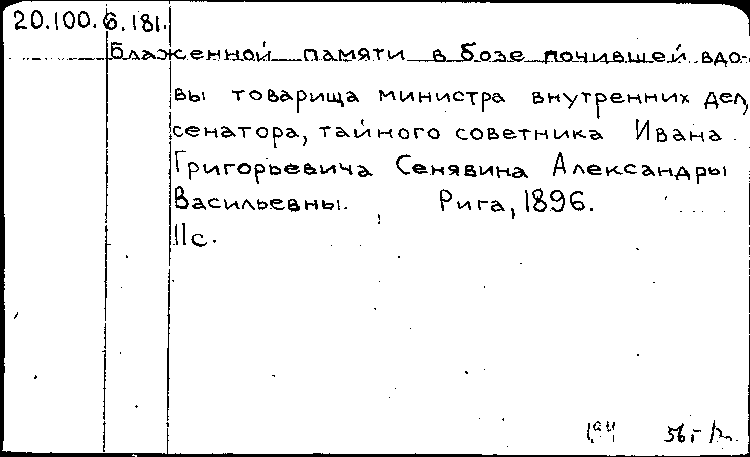 20.100.6.181.
Блаженной памяти в бозе почившей вдо-
вы товарища министра внутренних дел,
сенатора, тайного советника Ивана
Григорьевича Сенявина Александры
Васильевны. Рига, 1896.
11с.